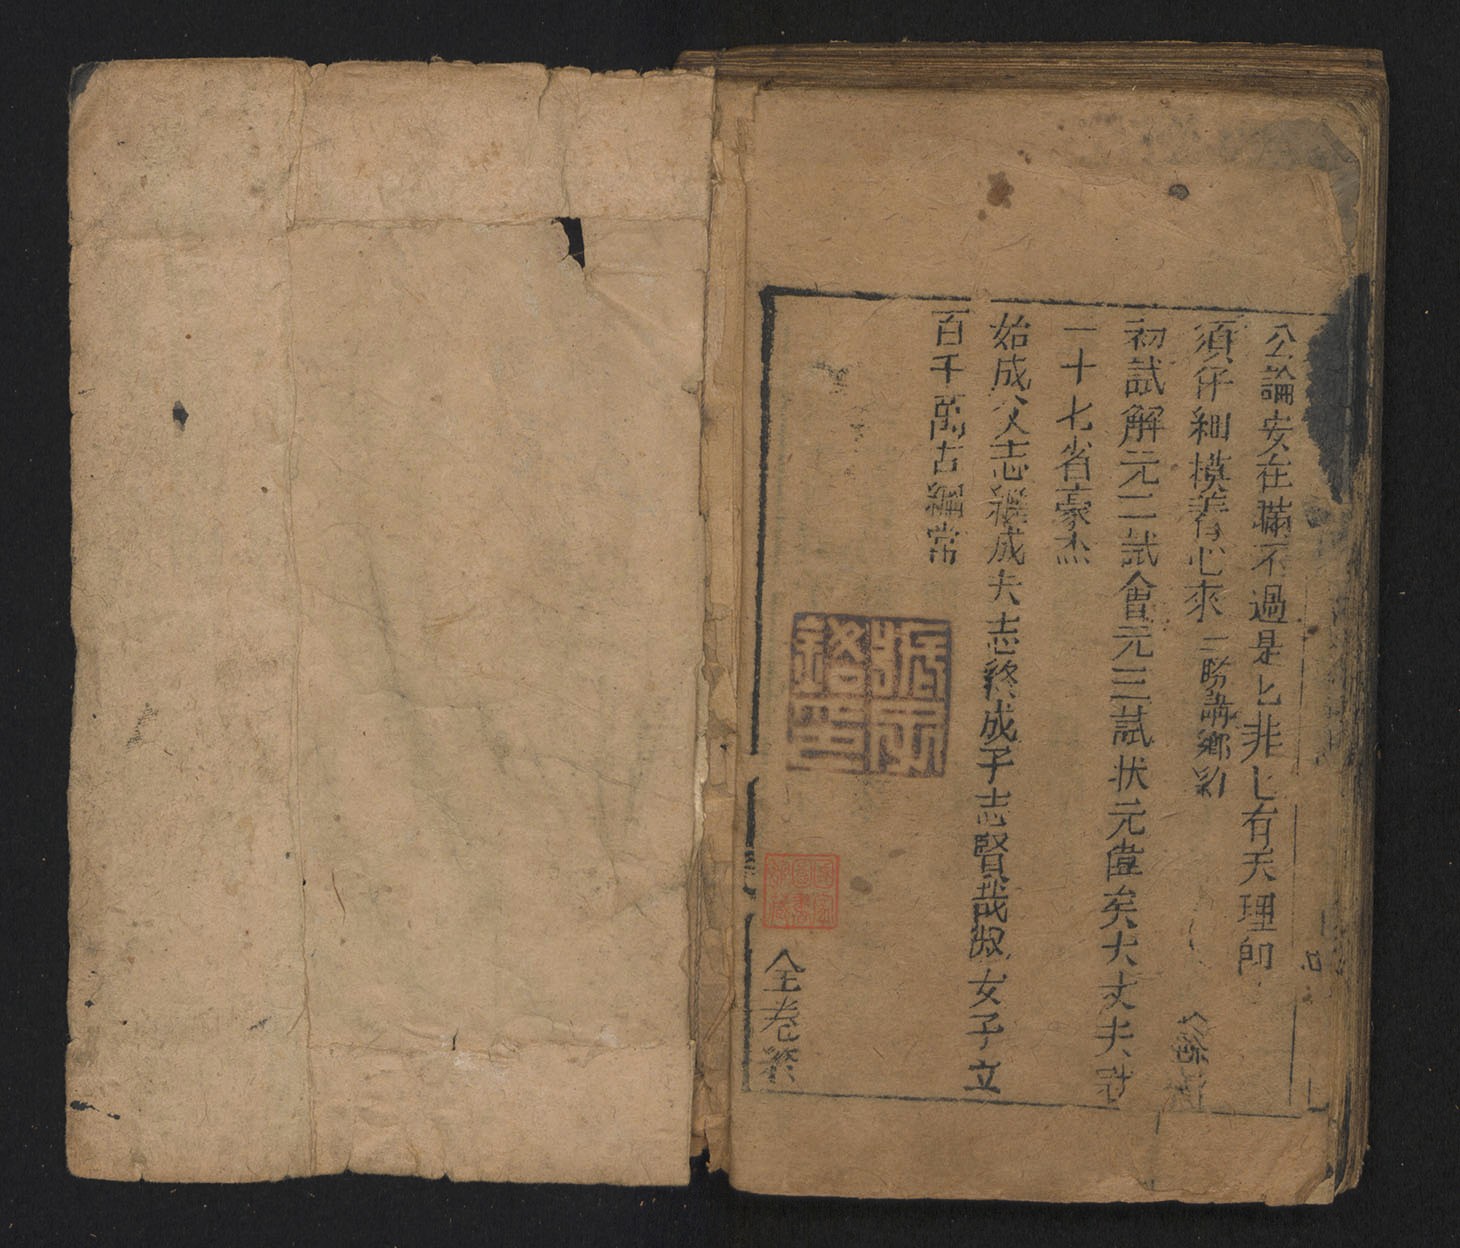 公論安在瞞不過是匕非匕有天理卽
須仔細模着心來 二盼講鄉
初試解元二試會元三試状元偉矣大丈夫
一十七省豪杰
始成父志繼成夫志終成子志賢哉淑女子立
百千萬古綱常
全卷終